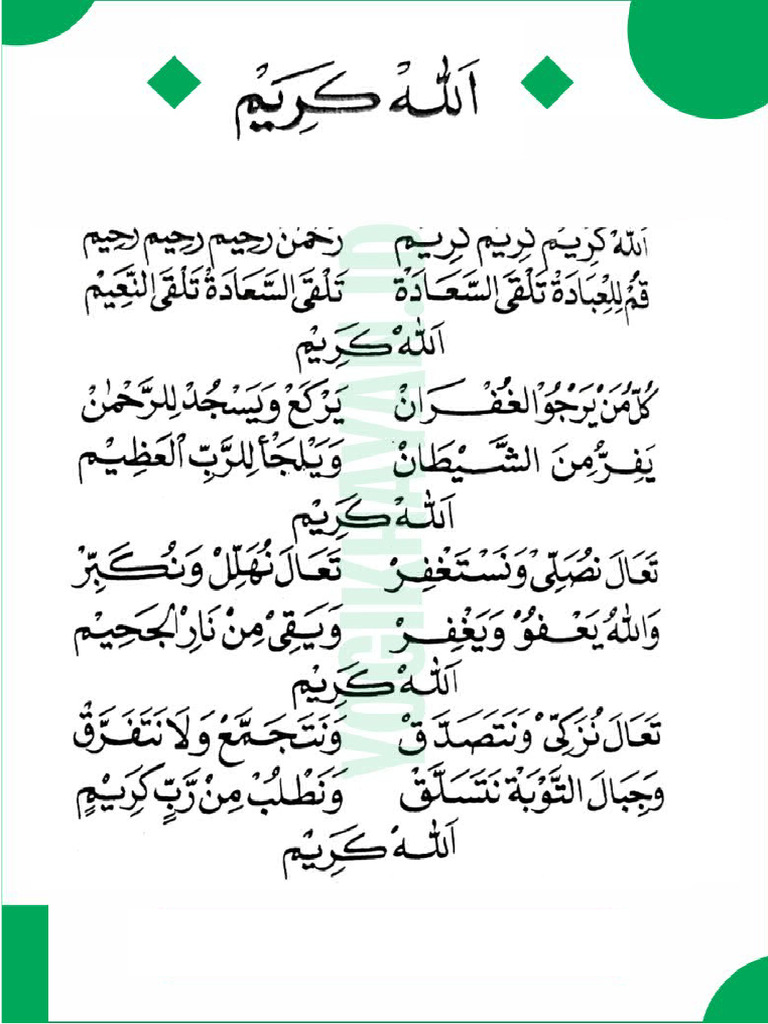 اَللّٰهْ كَرِيَمْ
اَللّٰهْ كَرِيَمْ كَرِيَمْ كَرِيَمْ رَحْمٰنْ رَحِيمْ رَحِيمْ رَحِيمْ
قُمْ لِلْعِبَادَةْ تَلْقَى السَّعَادَةْ تَلْقَى السَّعَادَةْ تَلْقَى النَّعِيَمْ
اَللّٰهْ كَرِيَمْ
كُلُّ مَنْ يَرْجُوْا الغُفْرَانْ يَرْكَعْ وَيَسْجُدْ لِلرَّحْمٰنْ
يَفِرُّ مِنَ الشَّيْطَانْ وَيَلْجَأْ لِلرَّبِّ الْعَظِيْم
اَللّٰهْ كَرِيَمْ
تَعَالَ نُصَلِّىْ وَنَسْتَغْفِرْ تَعَالَ نُهَلِّلْ وَنُكَبِّرْ
وَاللّٰهُ يَعْفُوْ وَيَغْفِرْ وَيَقِىْ مِنْ نَارِ الْجَحِيْم
اَللّٰهْ كَرِيَمْ
تَعَالَ نُزَكِّىْ وَنَتَصَدَّقْ وَنَتَجَمَّعْ وَلَا نَتَفَرَّقْ
وَجِبَالَ التَّوْبَةْ نَتَسَلَّقْ وَنَطْلُبْ مِنْ رَبٍّ كَرِيْمٍ
اَللّٰهْ كَرِيَمْ
YOGIKHAYAN.ID